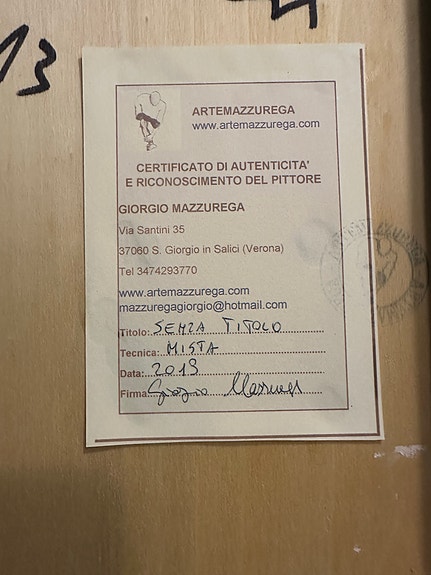 13
ARTEMAZZUREGA
www.artemazzurega.com
CERTIFICATO DI AUTENTICITA'
E RICONOSCIMENTO DEL PITTORE
GIORGIO MAZZUREGA
Via Santini 35
37060 S. Giorgio in Salici (Verona)
Tel 3474293770
www.artemazzurega.com
mazzuregagiorgio@hotmail.com
Titolo: SENZA TITOLO
Tecnica: MISTA
Data: 2013
Firma: Giorgio Mazzurega